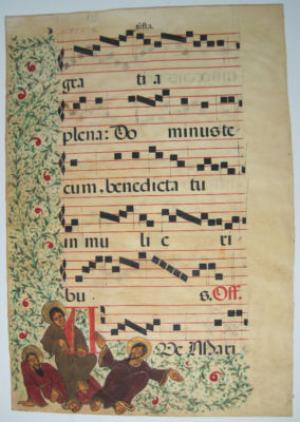 gra ti a
plena: Do minus te
cum, benedicta tu
in mu li e ri
bu s. Off.
A Ve Mari